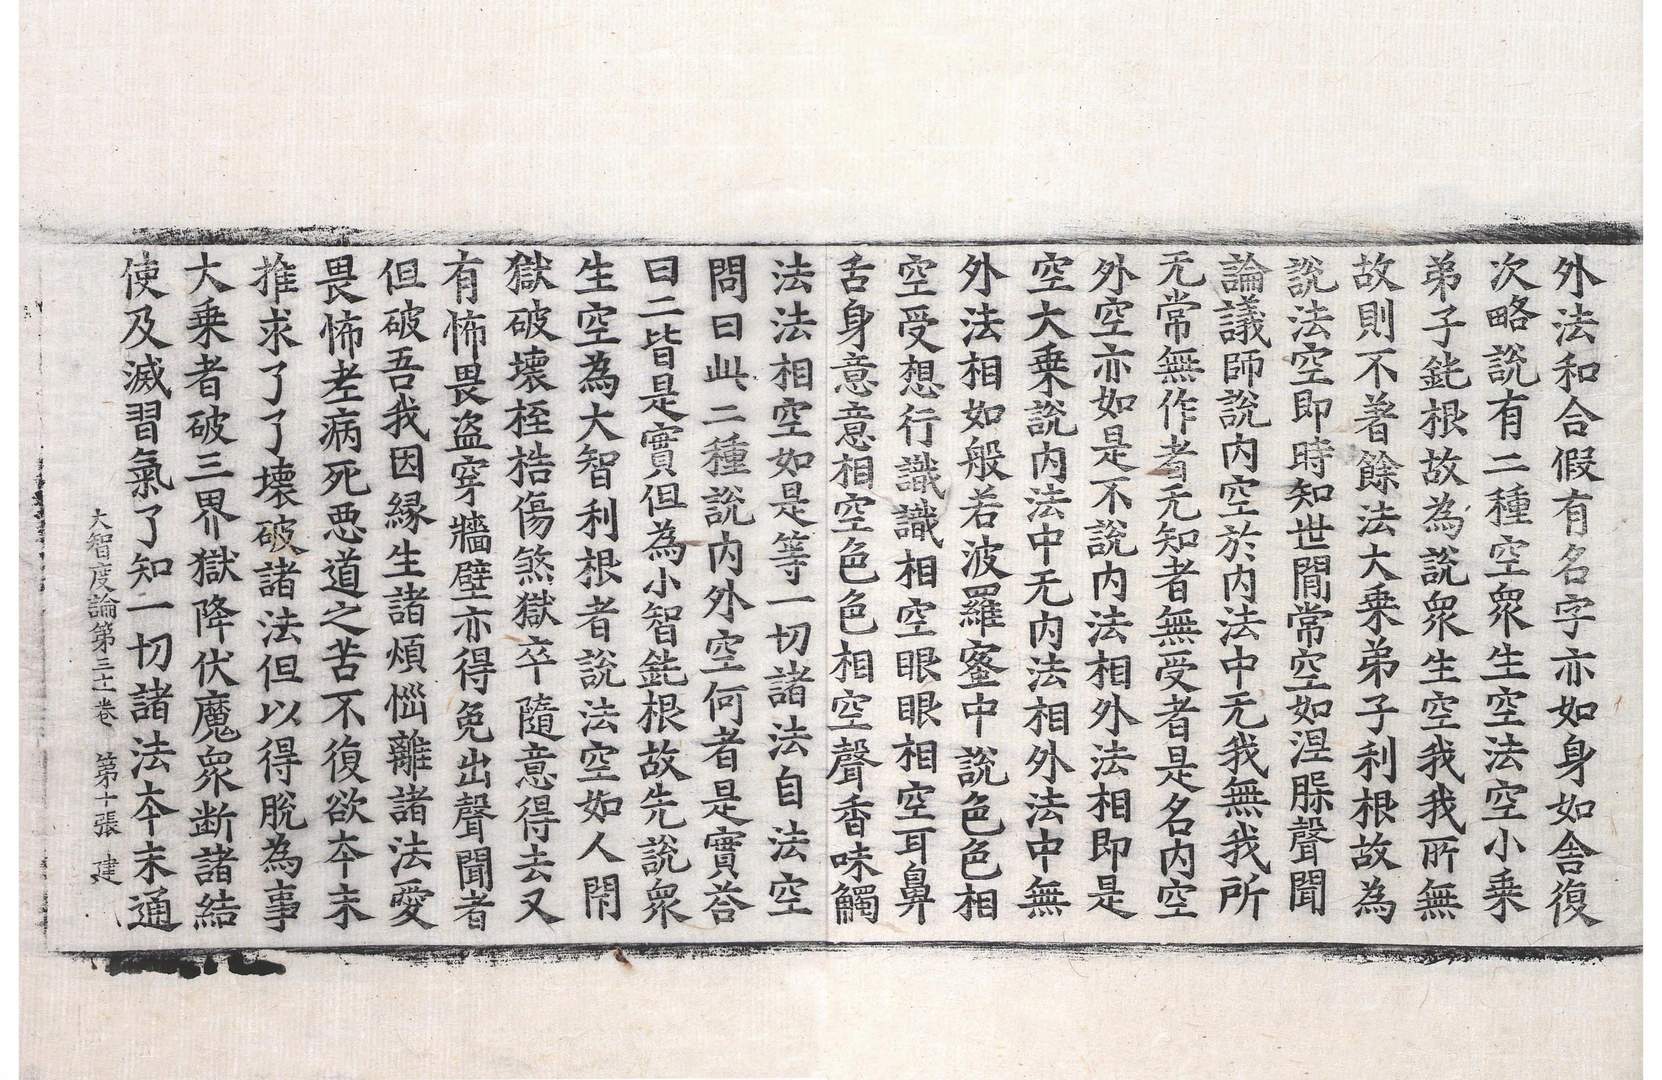 外法和合假有名字亦如身如舍復
次略說有二種空衆生空法空小乗
弟子鈍根故為說衆生空我我所無
故則不著餘法大乗弟子利根故為
說法空即時知世間常空如涅槃聲聞
論議師說内空於内法中无我無我所
无常無作者无知者無受者是名内空
外空亦如是不說内法相外法相即是
空大乗說内法中无内法相外法中無
外法相如般若波羅蜜中說色色相
空受想行識識相空眼眼相空耳鼻
舌身意意相空色色相空聲香味觸
法法相空如是等一切諸法自法空
問曰此二種說内外空何者是實荅
曰二皆是實但為小智鈍根故先說衆
生空為大智利根者說法空如人閇
獄破壊桎梏傷煞獄卒隨意得去又
有怖畏盗穿牆壁亦得免出聲聞者
但破吾我因緣生諸煩惱離諸法愛
畏怖老病死惡道之苦不復欲夲末
推求了了壊破諸法但以得脫為事
大乗者破三界獄降伏魔衆断諸結
使及滅習氣了知一切諸法夲末通
大智度論第三十一卷　第十張　建